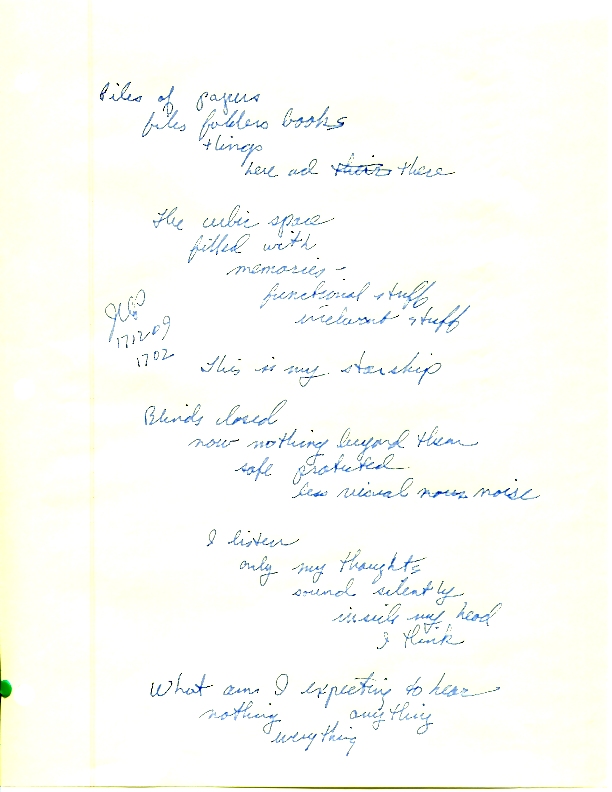 Piles of papers
files folders books
things
here ad their there
The cubic space
filled with
memories -
functional stuff
irrelevant stuff
171209
1702
This is my starship
Blinds closed
now nothing beyond them
safe protected
less visual nous noise
I listen
only my thoughts
sound silently
inside my head
I think
What am I expecting to hear
nothing anything
everything